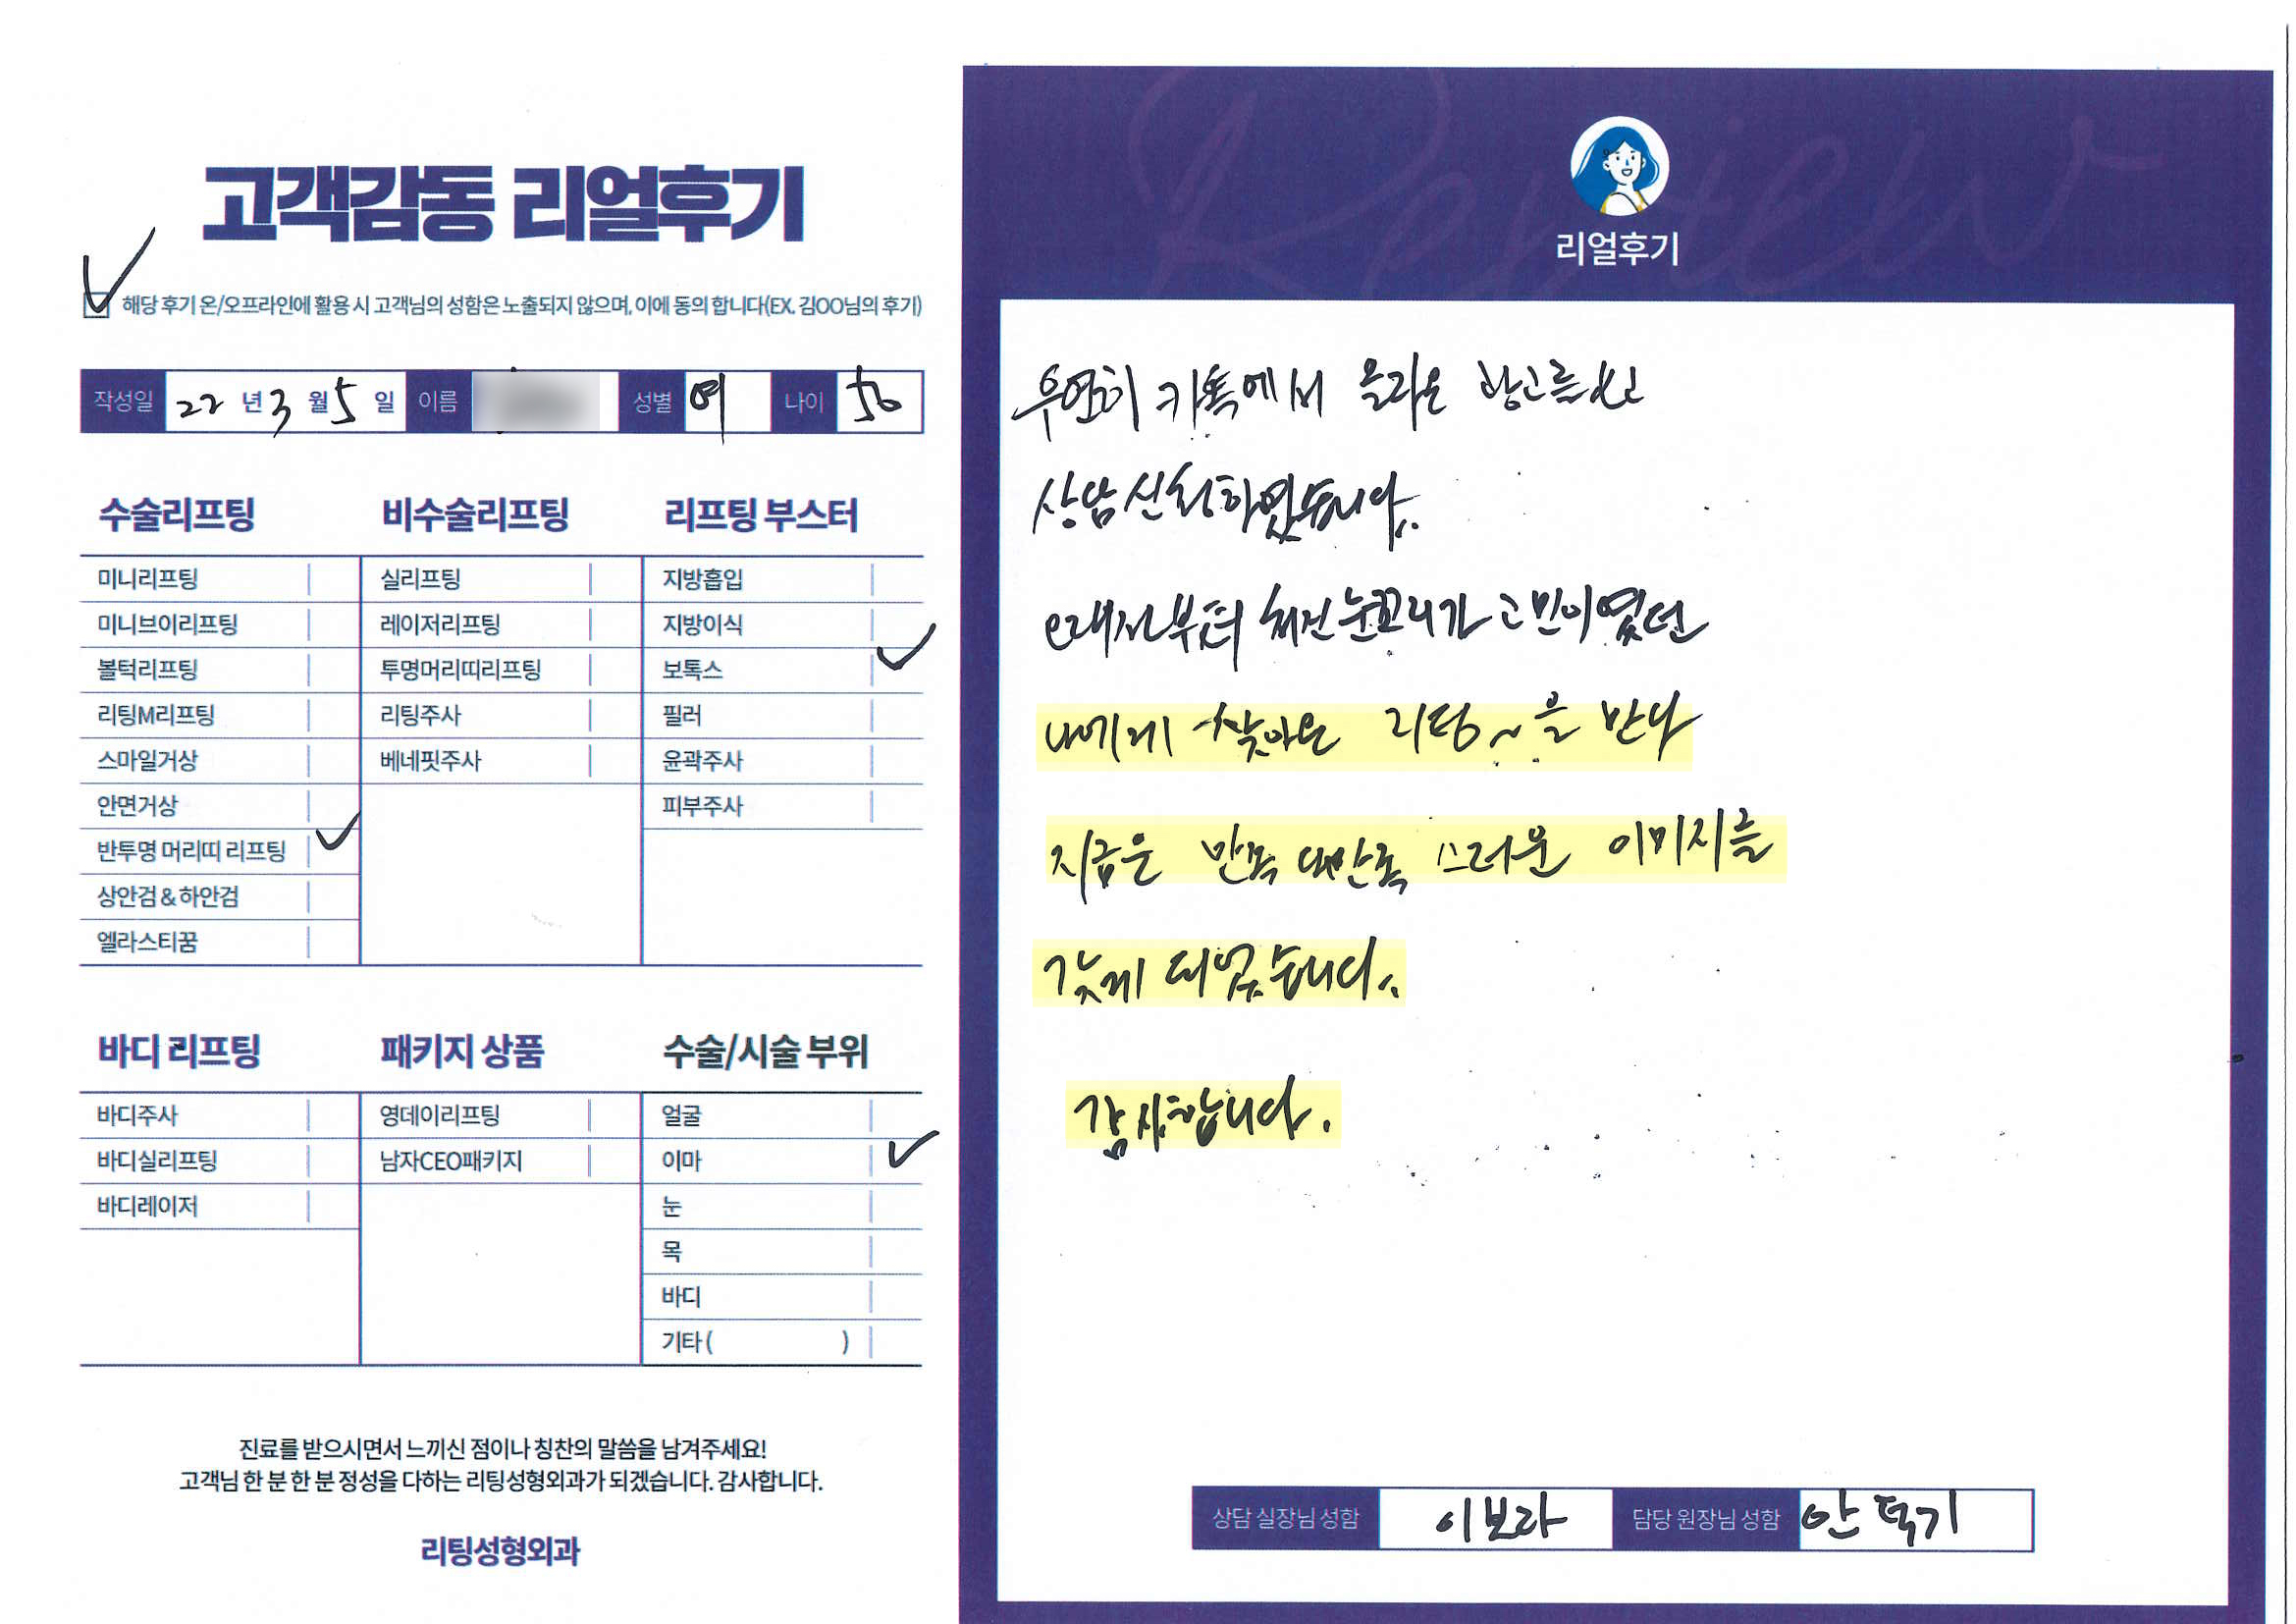 고객감동 리얼후기
해당 후기 온/오프라인에 활용 시 고객님의 성함은 노출되지 않으며, 이에 동의 합니다(EX. 김OO님의 후기)
작성일 22 년 3 월 5 일 이름 성별 여 나이 56
수술리프팅
미니리프팅
미니브이리프팅
볼턱리프팅
리팅M리프팅
스마일거상
안면거상
반투명 머리띠 리프팅
상안검 & 하안검
엘라스티꿈
비수술리프팅
실리프팅
레이저리프팅
투명머리띠리프팅
리팅주사
베네핏주사
리프팅 부스터
지방흡입
지방이식
보톡스
필러
윤곽주사
피부주사
바디 리프팅
바디주사
바디실리프팅
바디레이저
패키지 상품
영데이리프팅
남자CEO패키지
수술/시술 부위
얼굴
이마
눈
목
바디
기타 ( )
진료를 받으시면서 느끼신 점이나 칭찬의 말씀을 남겨주세요!
고객님 한 분 한 분 정성을 다하는 리팅성형외과가 되겠습니다. 감사합니다.
리팅성형외과
Review
리얼후기
우연히 카톡에서 올라온 광고를 보고
상담 신청하였습니다.
처진 눈꼬리가 고민이였던
나에게 찾아온 리팅~을 만나
지금은 만족 대만족 스러운 이미지를
갖게 되었습니다.
감사합니다.
상담 실장님 성함 이보라 담당 원장님 성함 안덕기